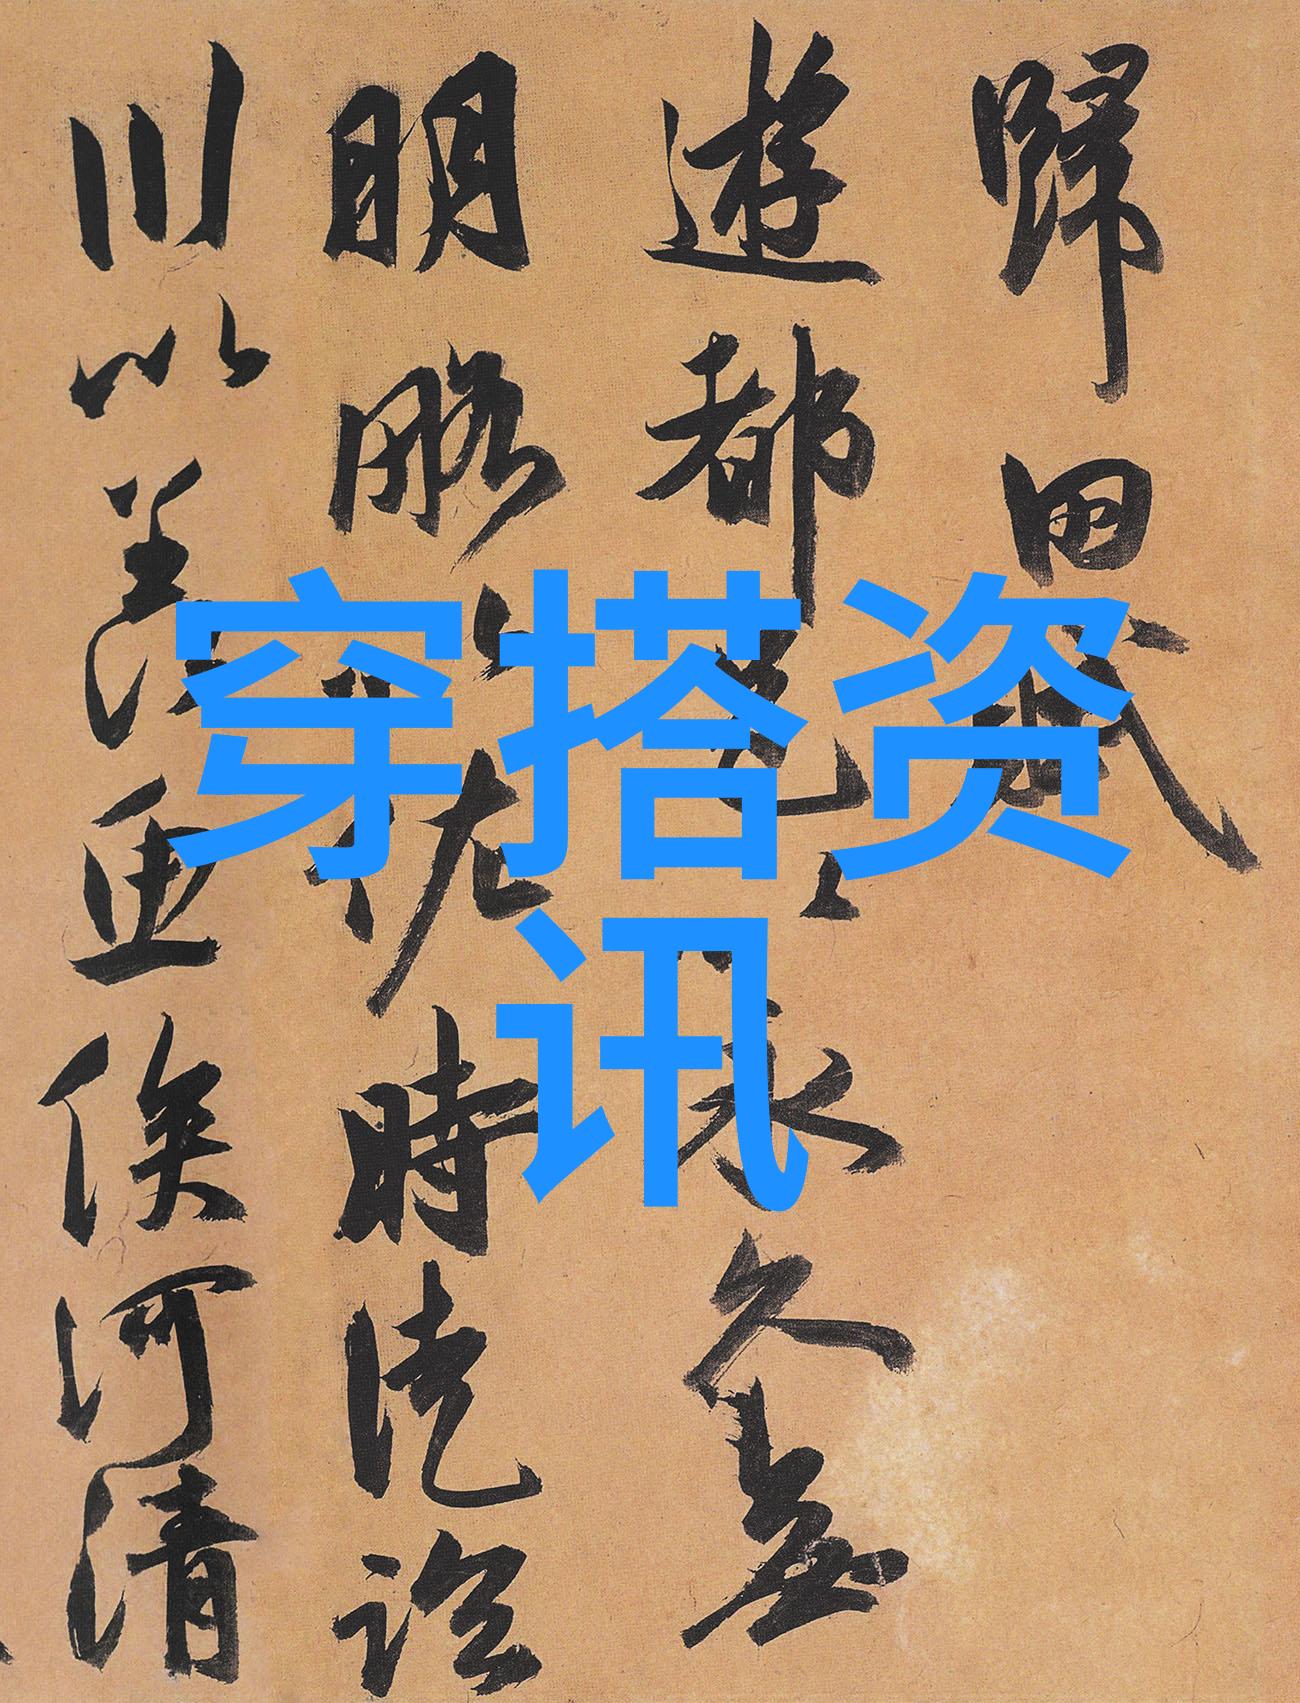 歸田賦
遊都邑以永久無
明略以佐時徒臨
川以羡魚俟河清
穿搭资
讯